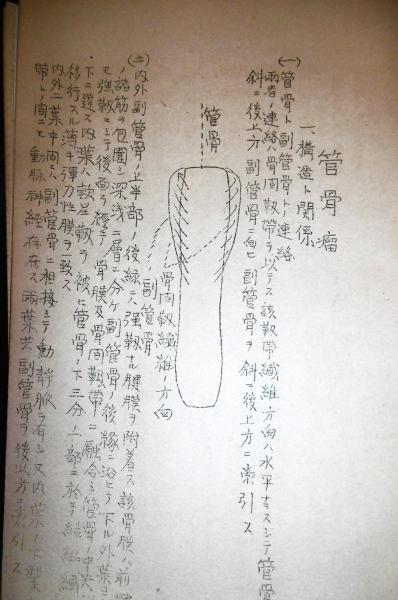 管骨瘤
一、構造ト関係
(一)管骨ト副管骨トノ連絡
両者ノ連絡ハ骨間靱帯ヲ以テス該靱帯纖維方向ハ水平ナラスシテ管骨
斜ニ後上方副管骨ニ向ヒ副管骨ヲ斜ニ後上方ニ索引ス
管骨
骨間靱帯纖維ノ方向
副管骨
(二)内外副管骨ノ上半部ノ後縁ニハ強靱ナル腱膜ヲ附着ス該骨膜ハ前
諸筋ヲ包囲シ深浅二層ニ分ケ副管骨ノ後縁ニ沿ヒテ下ル外葉ハ
モ強靱ニシテ後面ヲ経テ骨膜及骨間靱帯ニ融合シ管骨ノ中央以
下ニ達ス内葉ハ軟
靱ヲ被ヒ管骨ノ下三分ノ一部ニ於テ結締織
移行スル薄キ弾力性膜ヲ
内外二葉中間ハ副管骨ニ相接シテ動静脈ヲ有シ又内葉ノ下
帯トノ間ニモ動脈神経存在ス両葉共副管骨ヲ後上方ニ索引ス